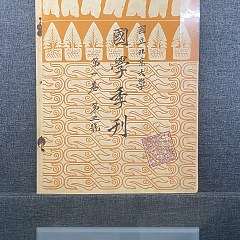 國立北京大學
國學季刊
第一卷 第三號